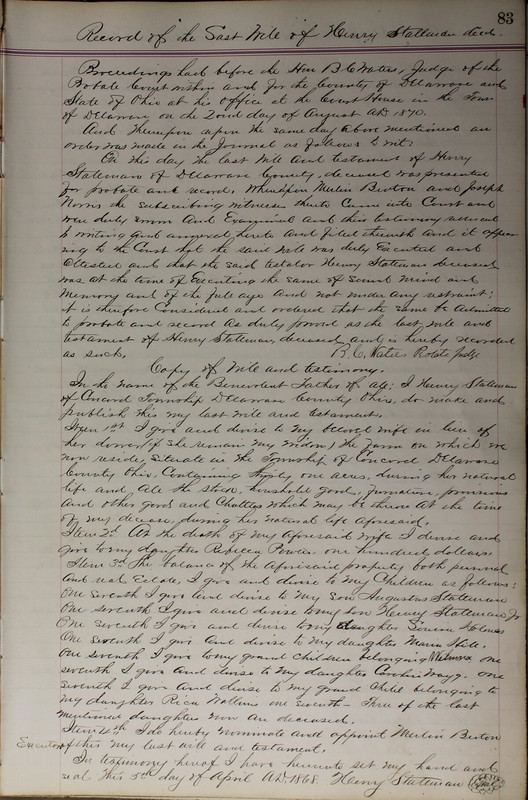 83
Record of the Last Will of Henry Stateman decd.
Proceedings had before the Hon B. C. Waters, Judge of the
Probate Court within and for the County of Delaware and
State of Ohio at his office at the Court House in the Town
of Delaware on the 22nd day of August A.D. 1870.
And Thereupon upon the same day above mentioned an
order was made in the Journal as follows to wit:
On this day the last Will and testament of Henry
Stateman of Delaware County, deceased was presented
for probate and record. Whereupon Merlin Burton and Joseph
Norris the subscribing witnesses thereto came into Court and
were duly sworn and Examined and their testimony reduced
to writing and annexed hereto and filed therewith and it appear
ing to the Court that the said will was duly Executed and
attested and that the said testator Henry Stateman deceased
was at the time of Executing the same of sound mind and
memory and of the full age and not under any restraint;
it is therefore Considered and ordered that the same be admitted
to probate and record as duly proved as the last will and
testament of Henry Stateman, deceased and is hereby recorded
as such. B. C. Waters Probate Judge
Copy of Will and testimony.
In the name of the Benevolent Father of all: I Henry Stateman
of Concord Township Delaware County Ohio, do make and
publish this my last will and testament.
Item 1st I give and devise to my beloved wife in lieu of
her dower (if she remain my widow) the farm on which we
now reside, situate in the Township of Concord Delaware
County Ohio. Containing thirty one acres, during her natural
life and all the stock, household goods, furniture, provisions
and other goods and Chattles which may be there at the time
of my decease, during her natural life aforesaid.
Item 2d At the death of my aforesaid wife I devise and
give to my daughter Rebecca one hundred dollars.
Item 3d The balance of the aforesaid property both personal
and real Estate, I give and devise to my Children as follows:
One seventh I give and devise to my son Augustus Stateman
One seventh I give and devise to my son Henry Stateman Jr
One seventh I give and devise to my daughter Holmes
One seventh I give and devise to my daughter Maria
One seventh I give to my grand Children belonging Minerva one
seventh I give and devise to my daughter Caroline one
seventh I give and devise to my grand Child belonging to
my daughter one seventh - Three of the last
mentioned daughters now are deceased.
Item 4th I do hereby nominate and appoint Merlin Burton
Executor of this my last will and testament.
In testimony hereof I have hereunto set my hand and
seal this 3d day of April A.D. 1868. Henry Stateman Seal